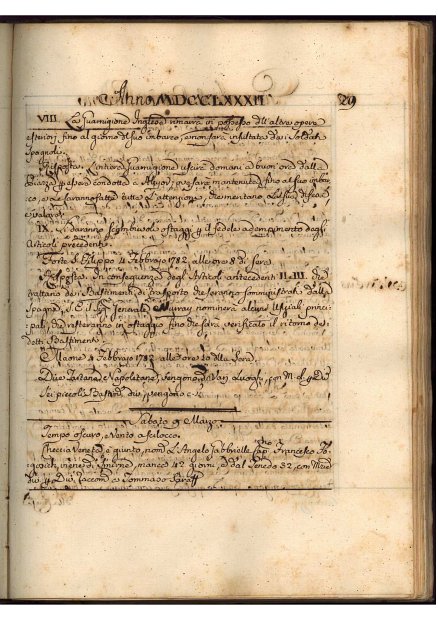 Anno MDCCLXXXII 29
VIII. La Guarnigione Inglese rimarrà in possesso dell'altre opere
esteriori fino al giorno del suo imbarco, e non sarà insultata dai Soldati
Spagnoli.
Risposta. L'intiera Guarnigione uscirà domani a buon'ora dalla
Piazza condotta a fino al suo imbar
co, e saranno fatte tutte l'attenzioni, che meritano la sua
e valore.
IX. Si daranno ostaggi p il fedele adempimento degli
Articoli precedenti.
Forte S. Filippo 4 Febbrajo 1782 alle ore 8 di sera.
Risposta. In conseguenza degli Articoli antecedenti II. III. che
trattano dei Bastimenti di trasporto che saranno somministrati dalla
Spagna, S. E. il Sig. General Murray nominerà alcuni Uffiziali princi-
pali, che resteranno in ostaggio fino che sarà verificato il ritorno de
detti Bastimenti.
Maone 4 Febbrajo 1782 alle ore 10 della Sera.
Due Tartane Napoletane, vengono da Varj Luoghi, con
Sei piccoli Bastim. div. vengono c.
Sabato 9 Marzo.
Tempo oscuro, e Vento a Scilocco.
Freccia Veneta è giunto, nom. L'Angelo Gabbrielle Cap. Francesco
viene di Smirne, manca 42 giorni, e dal Tenedo 32, con
p Due, raccom. a Tommado